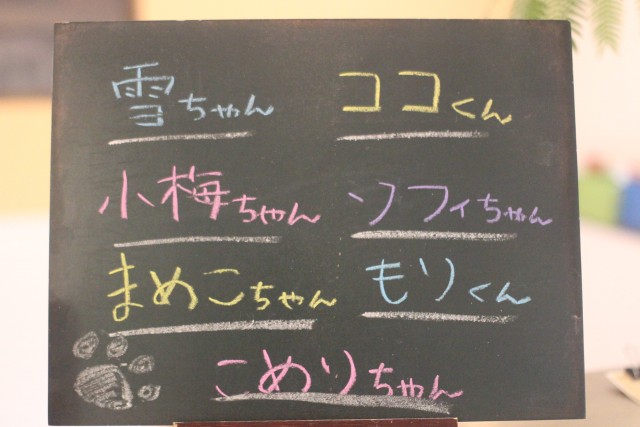 雪ちゃん ココくん
小梅ちゃん ソフィちゃん
まめこちゃん もりくん
こめりちゃん